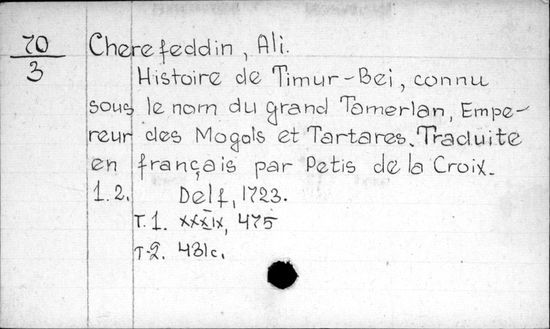 70/3 Cherefeddin, Ali.
Histoire de Timur-Bei, connu
sous le nom du grand Tamerlan, Empe-
reur des Mogols et Tartares. Traduite
en français par Petis de la Croix.
1.2. Delf, 1723.
T.1. XXXIX, 475
T.2. 431c.